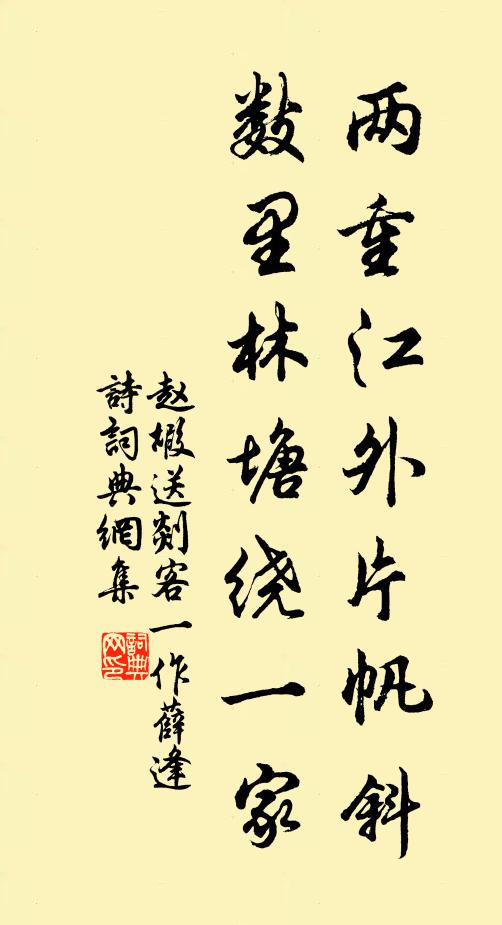 两重江外片帆斜
数里林塘绕一家
赵嘏送剡客一作薛逢
詩詞典網集
詞典
网印